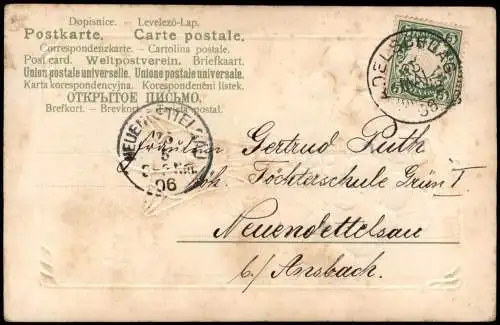 Dopisnice. - Levelező-Lap.
Postkarte. Carte postale.
Correspondenzkarte. - Cartolina postale.
Post card. - Weltpostverein. - Briefkaart.
Union postale universelle. Unione postale universale.
Karta korespondencyjna. - Korespondenčni lístek.
ОТКРЫТОЕ ПИСЬМО.
Brefkort. - Brevkort. - postal.
5 5
ADELSBURG
06
NEUENDETTELSAU
06
Fräulein Gertrud Puth
Töchterschule Grün I
Neuendettelsau
b./ Ansbach.